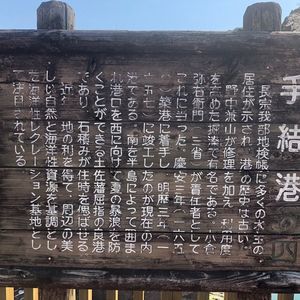 手結港の内
長宗我部地検帳に多くの水主の
居住が示され、港の歴史は古い。
野中兼山が修理を加え、利用度
を高めた掘湊で有名である。小倉
弥右衛門（省）が責任者として
これに当った。慶安三年（一六五
〇）築港に着手し、明暦三年（一
六五七）に竣工したのが現在の内
港である。南を半島によって囲ま
れ港口を西に向けて夏の暴浪を防
ぐことができる土佐屈指の良港
であり、石積みが往時を偲ばせる
近年、地の利を得て、周辺の美
しい自然と海洋性資源を基調とし
た海洋性レクレーション基地とし
て注目されている。